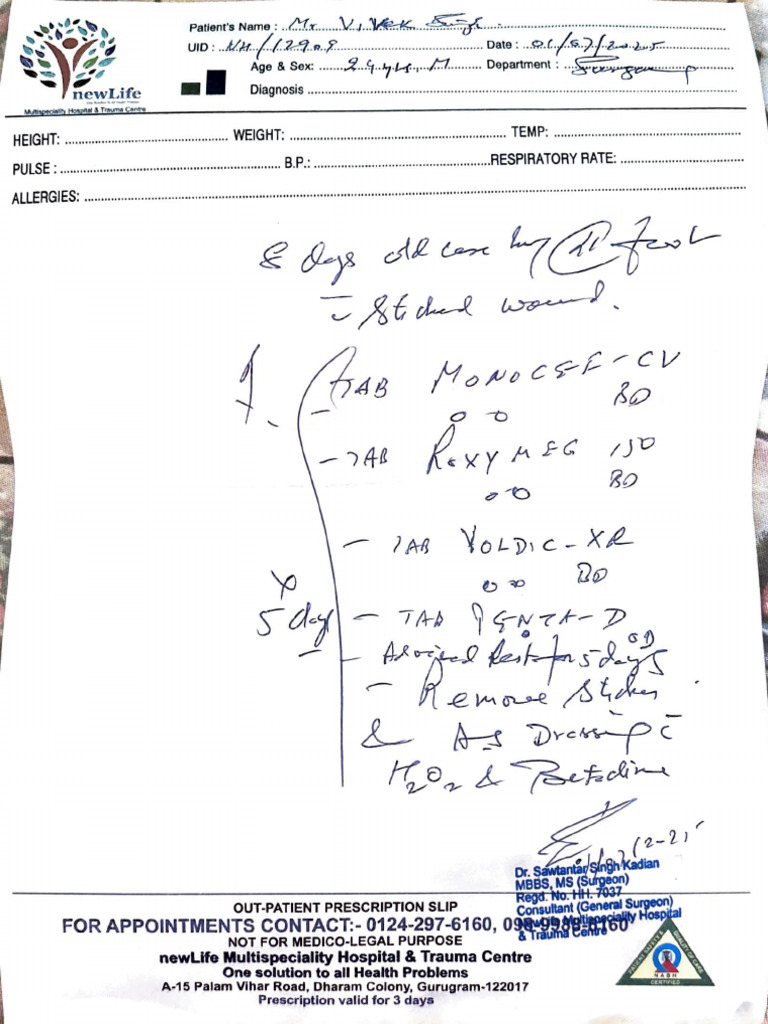 Patient's Name : Mr Vivek Singh
UID : NH/12909 Date : 01/07/2025
Age & Sex: 29 yrs, M Department : Surgery
newLife
Multispeciality Hospital & Trauma Centre
Diagnosis
HEIGHT: WEIGHT: TEMP:
PULSE : B.P.: RESPIRATORY RATE:
ALLERGIES:
8 days old case foot
c Stiched wound.
- TAB MONOCEF-CV
BD
- TAB ROXYMEG 150
BD
- TAB VOLDIC-XR
BD
x
5 days - TAB PENTA-D
OD
- Advised Rest for 5 days
- Remove Stiches
& Dressing c
H2O2 & Betadine
Dr. Sawtantar Singh Kadian
MBBS, MS (Surgeon)
Regd. No. HH. 7037
Consultant (General Surgeon)
NewLife Multispeciality Hospital
& Trauma Centre
OUT-PATIENT PRESCRIPTION SLIP
FOR APPOINTMENTS CONTACT:- 0124-297-6160,
NOT FOR MEDICO-LEGAL PURPOSE
newLife Multispeciality Hospital & Trauma Centre
One solution to all Health Problems
A-15 Palam Vihar Road, Dharam Colony, Gurugram-122017
Prescription valid for 3 days
NABH
CERTIFIED